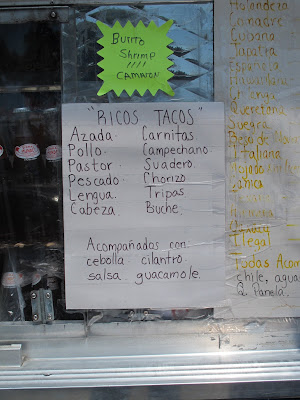 Burito
Shrimp
Camaron
"RICOS TACOS"
Azada Carnitas
Pollo. Campechano
Pastor. Suadero
Pescado. Chorizo
Lengua. Tripas
Cabeza. Buche
Acompañados con
cebolla cilantro.
salsa guacamole.
Holandeza
Cubana
Española
Queretana
Suegra
Beso de
Italiana
Ilegal
Todas Acom
chile, agua
Panela.